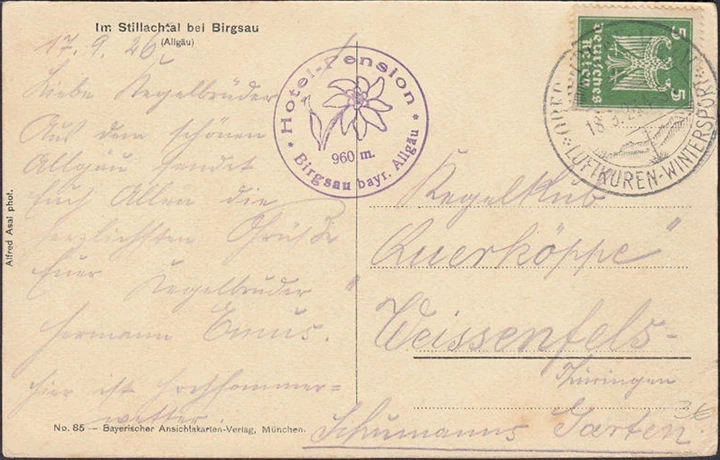 Im Stillachtal bei Birgsau
(Allgäu)
17. 9. 26.
Liebe Kegelbrüder
Aus dem schönen
Allgäu sendet
Euch Allen die
herzlichsten Grüße
Euer Kegelbruder
Hermann
hier ist Hochsommer-
wetter.
Alfred Asal phot.
No. 85 — Bayerischer Ansichtskarten-Verlag, München.
* Hotel-Pension *
960 m.
Birgsau bayr. Allgäu
5 Deutsches Reich 5
18. 9. 26
LUFTKUREN-WINTERSPORT
Kegelklub
"Querköppe"
Weissenfels-
Thüringen
Schumanns Garten.
3€